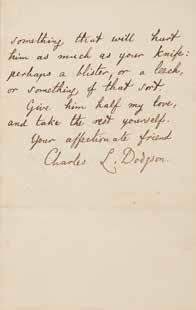 something that will hurt
him as much as your knife:
perhaps a blister, or a leech,
or something of that sort.
Give him half my love,
and take the rest yourself.
Your affectionate friend
Charles L. Dodgson.